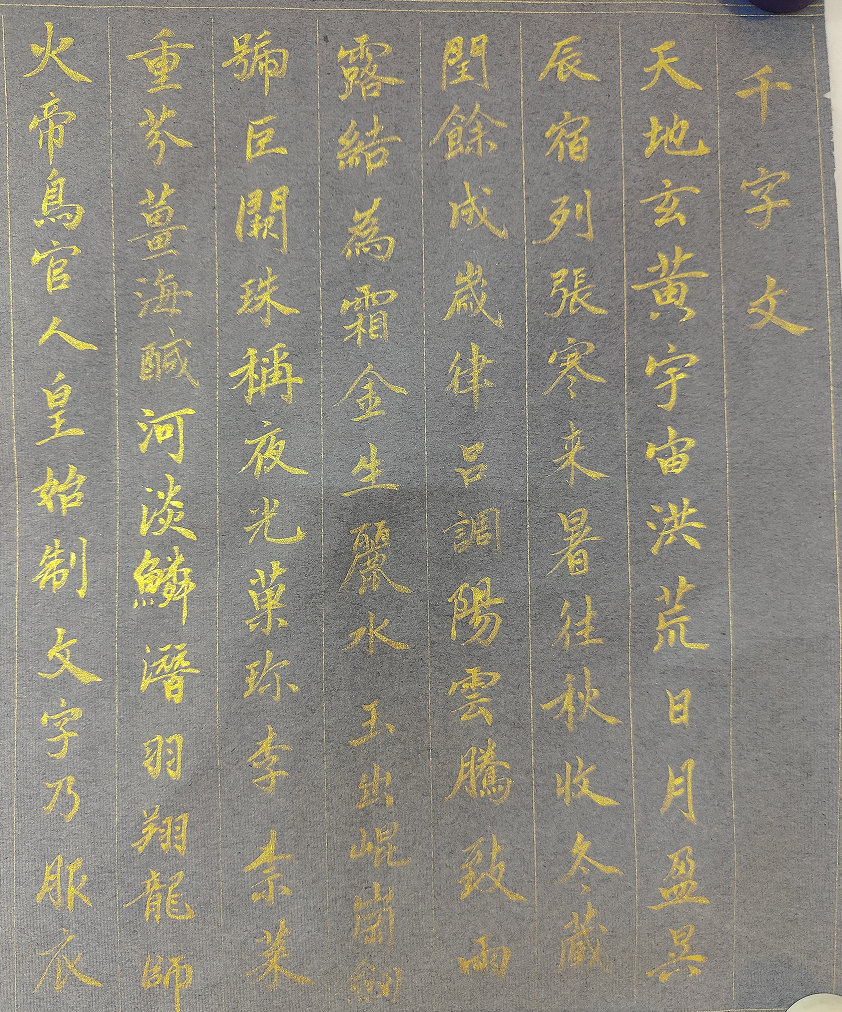 千字文
天地玄黃宇宙洪荒日月盈昃
辰宿列張寒来暑往秋收冬蔵
閏餘成歲律吕調陽雲騰致雨
露結為霜金生麗水玉出崐崗劒
號巨闕珠稱夜光菓珎李柰菜
重芥薑海醎河淡鱗潛羽翔龍師
火帝鳥官人皇始制文字乃服衣